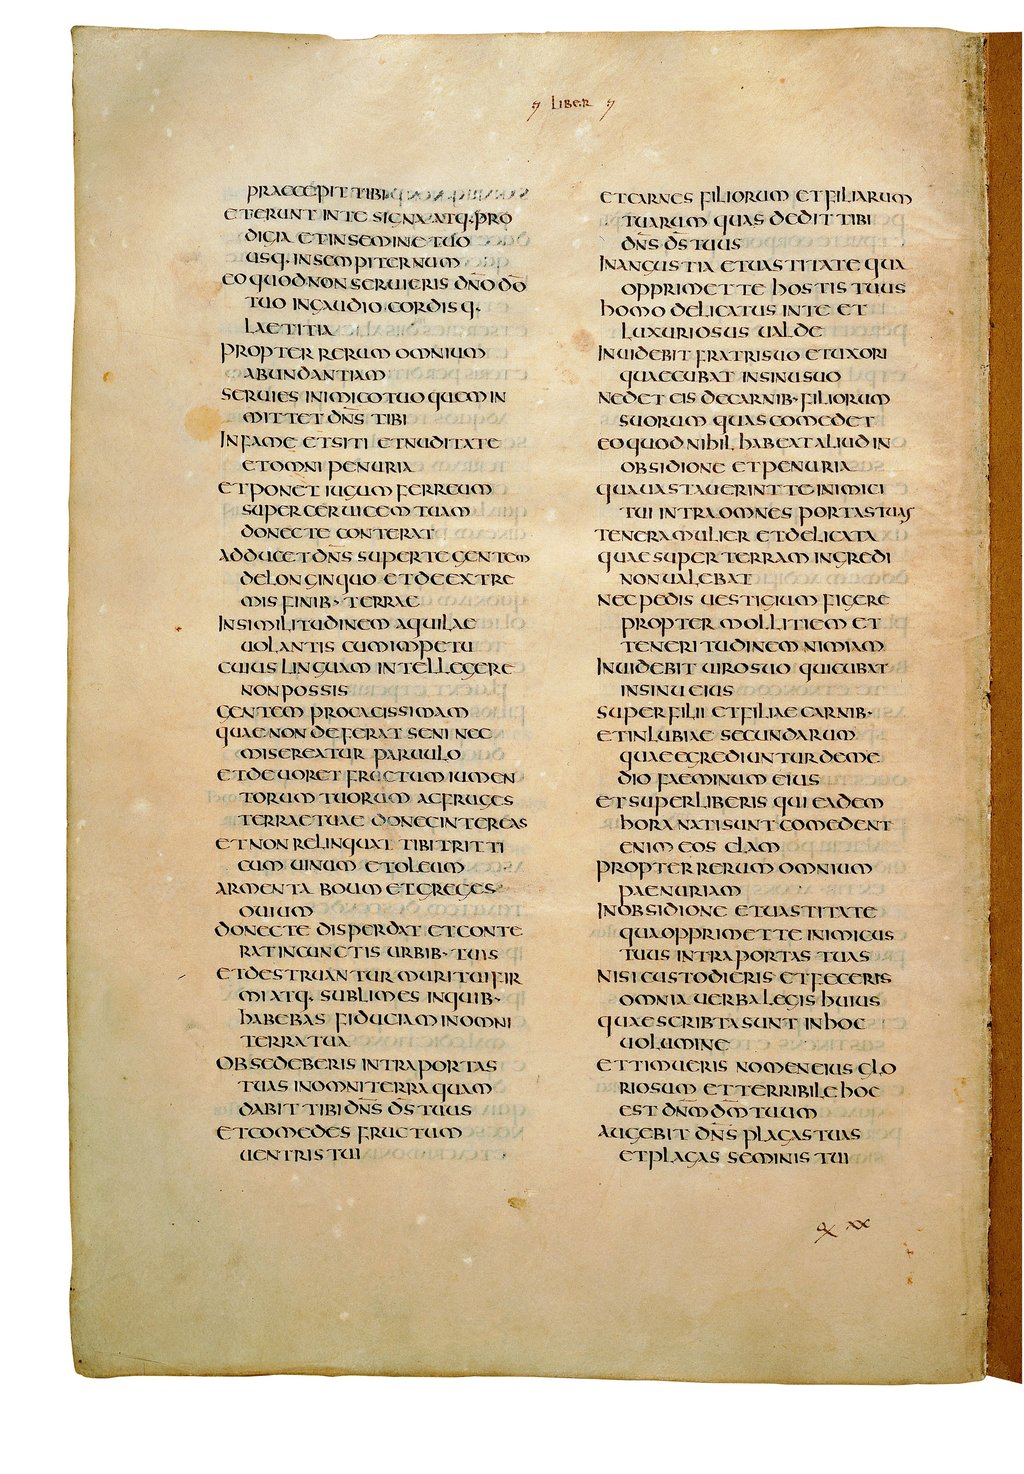 LIBER
PRAECEPIT TIBI
ET ERUNT IN TE SIGNA·ATQ·PRO
DIGIA ET IN SEMINE TUO
USQ· IN SEMPITERNUM
EO QUOD NON SERUIERIS DÑO DŌ
TUO IN GAUDIO CORDISQ·
LAETITIA
PROPTER RERUM OMNIUM
ABUNDANTIAM
SERUIES INIMICO TUO QUEM IN
MITTET DÑS TIBI
IN FAME ET SITI ET NUDITATE
ET OMNI PENURIA
ET PONET IUGUM FERREUM
SUPER CERUICEM TUAM
DONEC TE CONTERAT
ADDUCET DÑS SUPER TE GENTEM
DE LONGINQUO ET DE EXTRE
MIS FINIB· TERRAE
IN SIMILITUDINEM AQUILAE
UOLANTIS CUM IMPETU
CUIUS LINGUAM INTELLEGERE
NON POSSIS
GENTEM PROCACISSIMAM
QUAE NON DEFERAT SENI NEC
MISEREATUR PARUULO
ET DEUORET FRUCTUM IUMEN
TORUM TUORUM AC FRUGES
TERRAE TUAE DONEC INTEREAS
ET NON RELINQUAT TIBI TRITI
CUM UINUM ET OLEUM
ARMENTA BOUM ET GREGES
OUIUM
DONEC TE DISPERDAT ET CONTE
RAT IN CUNCTIS URBIB· TUIS
ET DESTRUANTUR MURI TUI FIR
MI ATQ· SUBLIMES IN QUIB·
HABEBAS FIDUCIAM IN OMNI
TERRA TUA
OBSEDEBERIS INTRA PORTAS
TUAS IN OMNI TERRA QUAM
DABIT TIBI DÑS DS̄ TUUS
ET COMEDES FRUCTUM
UENTRIS TUI
ET CARNES FILIORUM ET FILIARUM
TUARUM QUAS DEDIT TIBI
DÑS DS̄ TUUS
IN ANGUSTIA ET UASTITATE QUA
OPPRIMET TE HOSTIS TUUS
HOMO DELICATUS IN TE ET
LUXURIOSUS UALDE
INUIDEBIT FRATRI SUO ET UXORI
QUAE CUBAT IN SINU SUO
NE DET EIS DE CARNIB· FILIORUM
SUORUM QUAS COMEDET
EO QUOD NIHIL HABEAT ALIUD IN
OBSIDIONE ET PENURIA
QUA UASTAUERINT TE INIMICI
TUI INTRA OMNES PORTAS TUAS
TENERA MULIER ET DELICATA
QUAE SUPER TERRAM INGREDI
NON UALEBAT
NEC PEDIS UESTIGIUM FIGERE
PROPTER MOLLITIEM ET
TENERITUDINEM NIMIAM
INUIDEBIT UIRO SUO QUI CUBAT
IN SINU EIUS
SUPER FILII ET FILIAE CARNIB·
ET INLUBIAE SECUNDARUM
QUAE EGREDIUNTUR DE ME
DIO FAEMINUM EIUS
ET SUPER LIBERIS QUI EADEM
HORA NATI SUNT COMEDENT
ENIM EOS CLAM
PROPTER RERUM OMNIUM
PAENURIAM
IN OBSIDIONE ET UASTITATE
QUA OPPRIMET TE INIMICUS
TUUS INTRA PORTAS TUAS
NISI CUSTODIERIS ET FECERIS
OMNIA UERBA LEGIS HUIUS
QUAE SCRIBTA SUNT IN HOC
UOLUMINE
ET TIMUERIS NOMEN EIUS GLO
RIOSUM ET TERRIBILE HOC
EST DÑM DM̄ TUUM
AUGEBIT DÑS PLAGAS TUAS
ET PLAGAS SEMINIS TUI